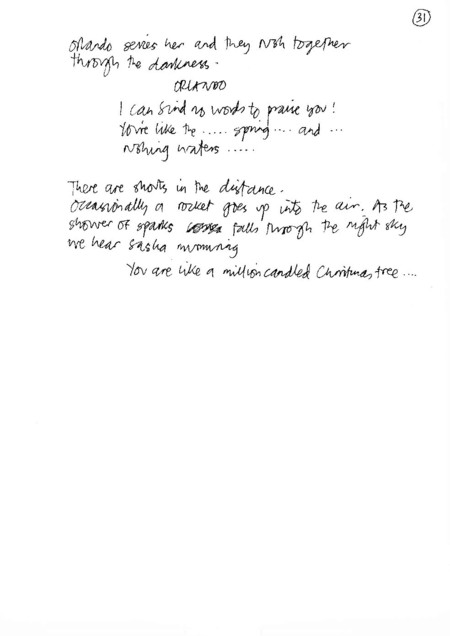 31
Orlando seizes her and they rush together
through the darkness.
ORLANDO
I can find no words to praise you!
You're like the ..... spring .... and ...
rushing waters .....
There are shouts in the distance.
Occasionally a rocket goes up into the air. As the
shower of sparks falls through the night sky
we hear Sasha murmuring
You are like a million candled Christmas tree ....